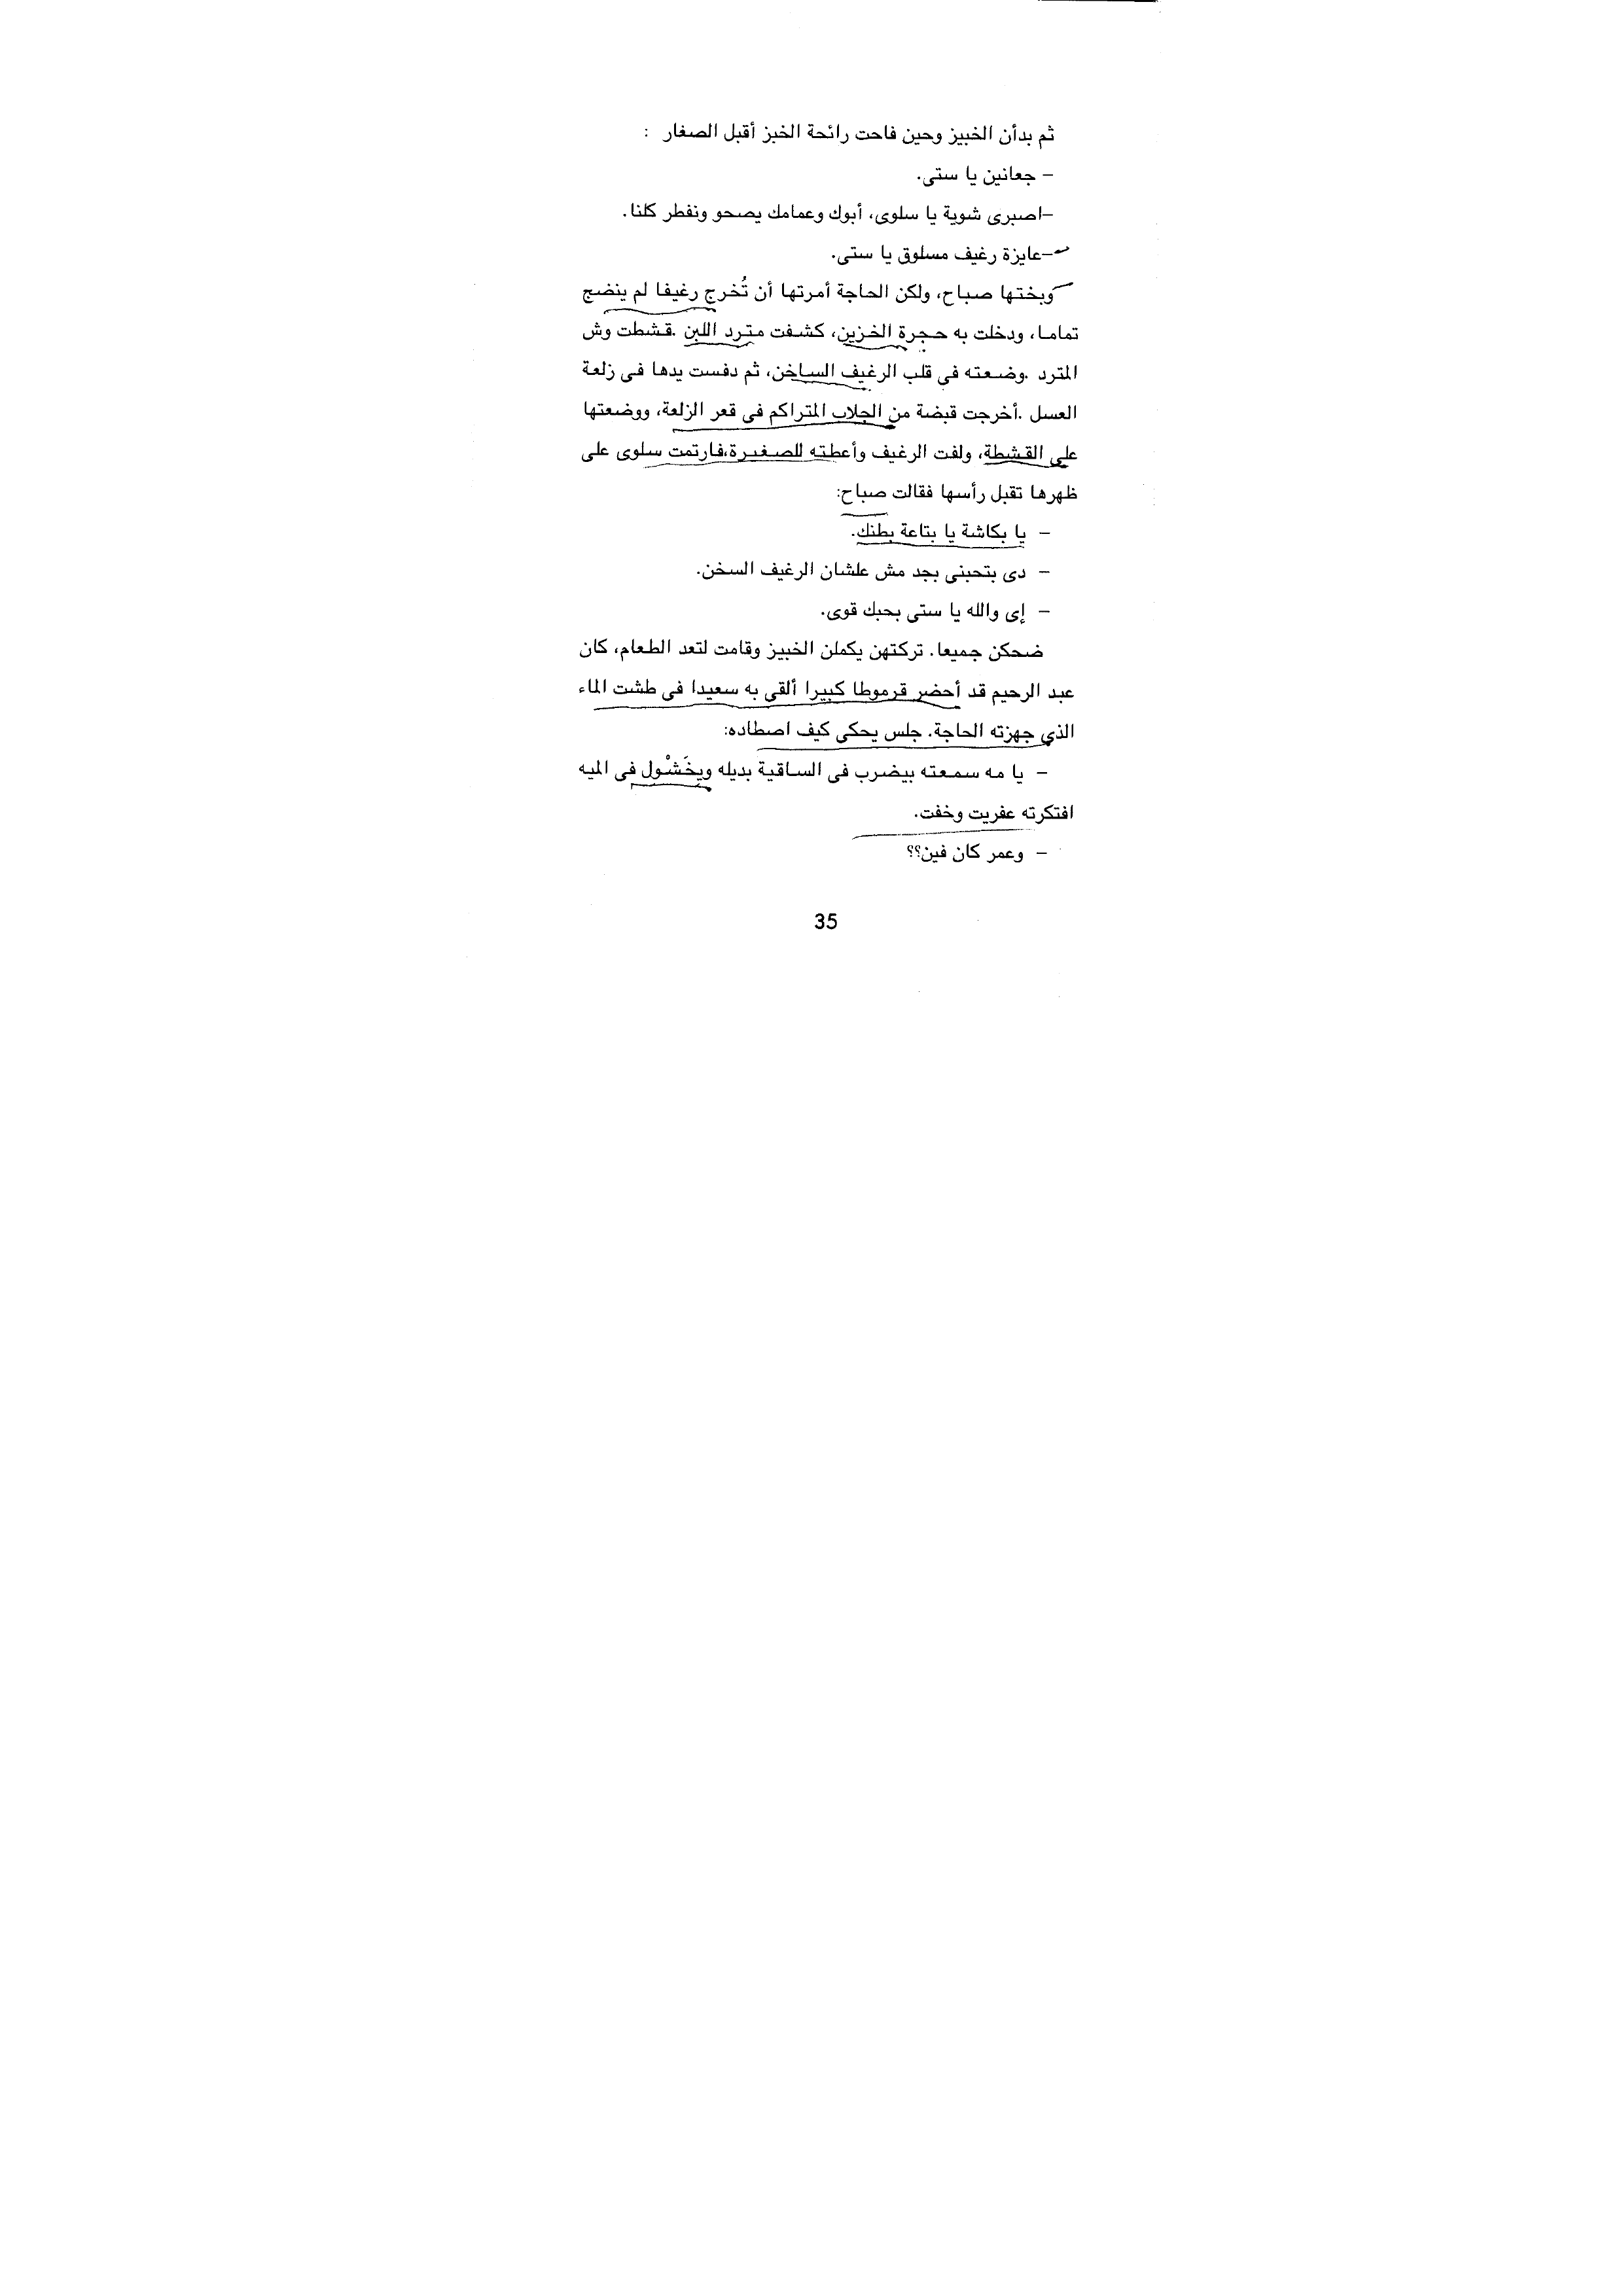 ثم بدأن الخبيز وحين فاحت رائحة الخبز أقبل الصغار :
– جعانين يا ستى.
–اصبرى شوية يا سلوى، أبوك وعمامك يصحو ونفطر كلنا.
–عايزة رغيف مسلوق يا ستى.
وبختها صباح، ولكن الحاجة أمرتها أن تُخرج رغيفا لم ينضج
تماما، ودخلت به حجرة الخزين، كشفت مترد اللبن .قشطت وش
المترد .وضعته فى قلب الرغيف الساخن، ثم دفست يدها فى زلعة
العسل .أخرجت قبضة من الجلاب المتراكم فى قعر الزلعة، ووضعتها
على القشطة، ولفت الرغيف وأعطته للصغيرة،فارتمت سلوى على
ظهرها تقبل رأسها فقالت صباح:
– يا بكاشة يا بتاعة بطنك.
– دى بتحبنى بجد مش علشان الرغيف السخن.
– إى والله يا ستى بحبك قوى.
ضحكن جميعا. تركتهن يكملن الخبيز وقامت لتعد الطعام، كان
عبد الرحيم قد أحضر قرموطا كبيرا ألقى به سعيدا فى طشت الماء
الذي جهزته الحاجة. جلس يحكى كيف اصطاده:
– يا مه سمعته بيضرب فى الساقية بديله ويخَشْول فى الميه
افتكرته عفريت وخفت.
– وعمر كان فين؟؟
35